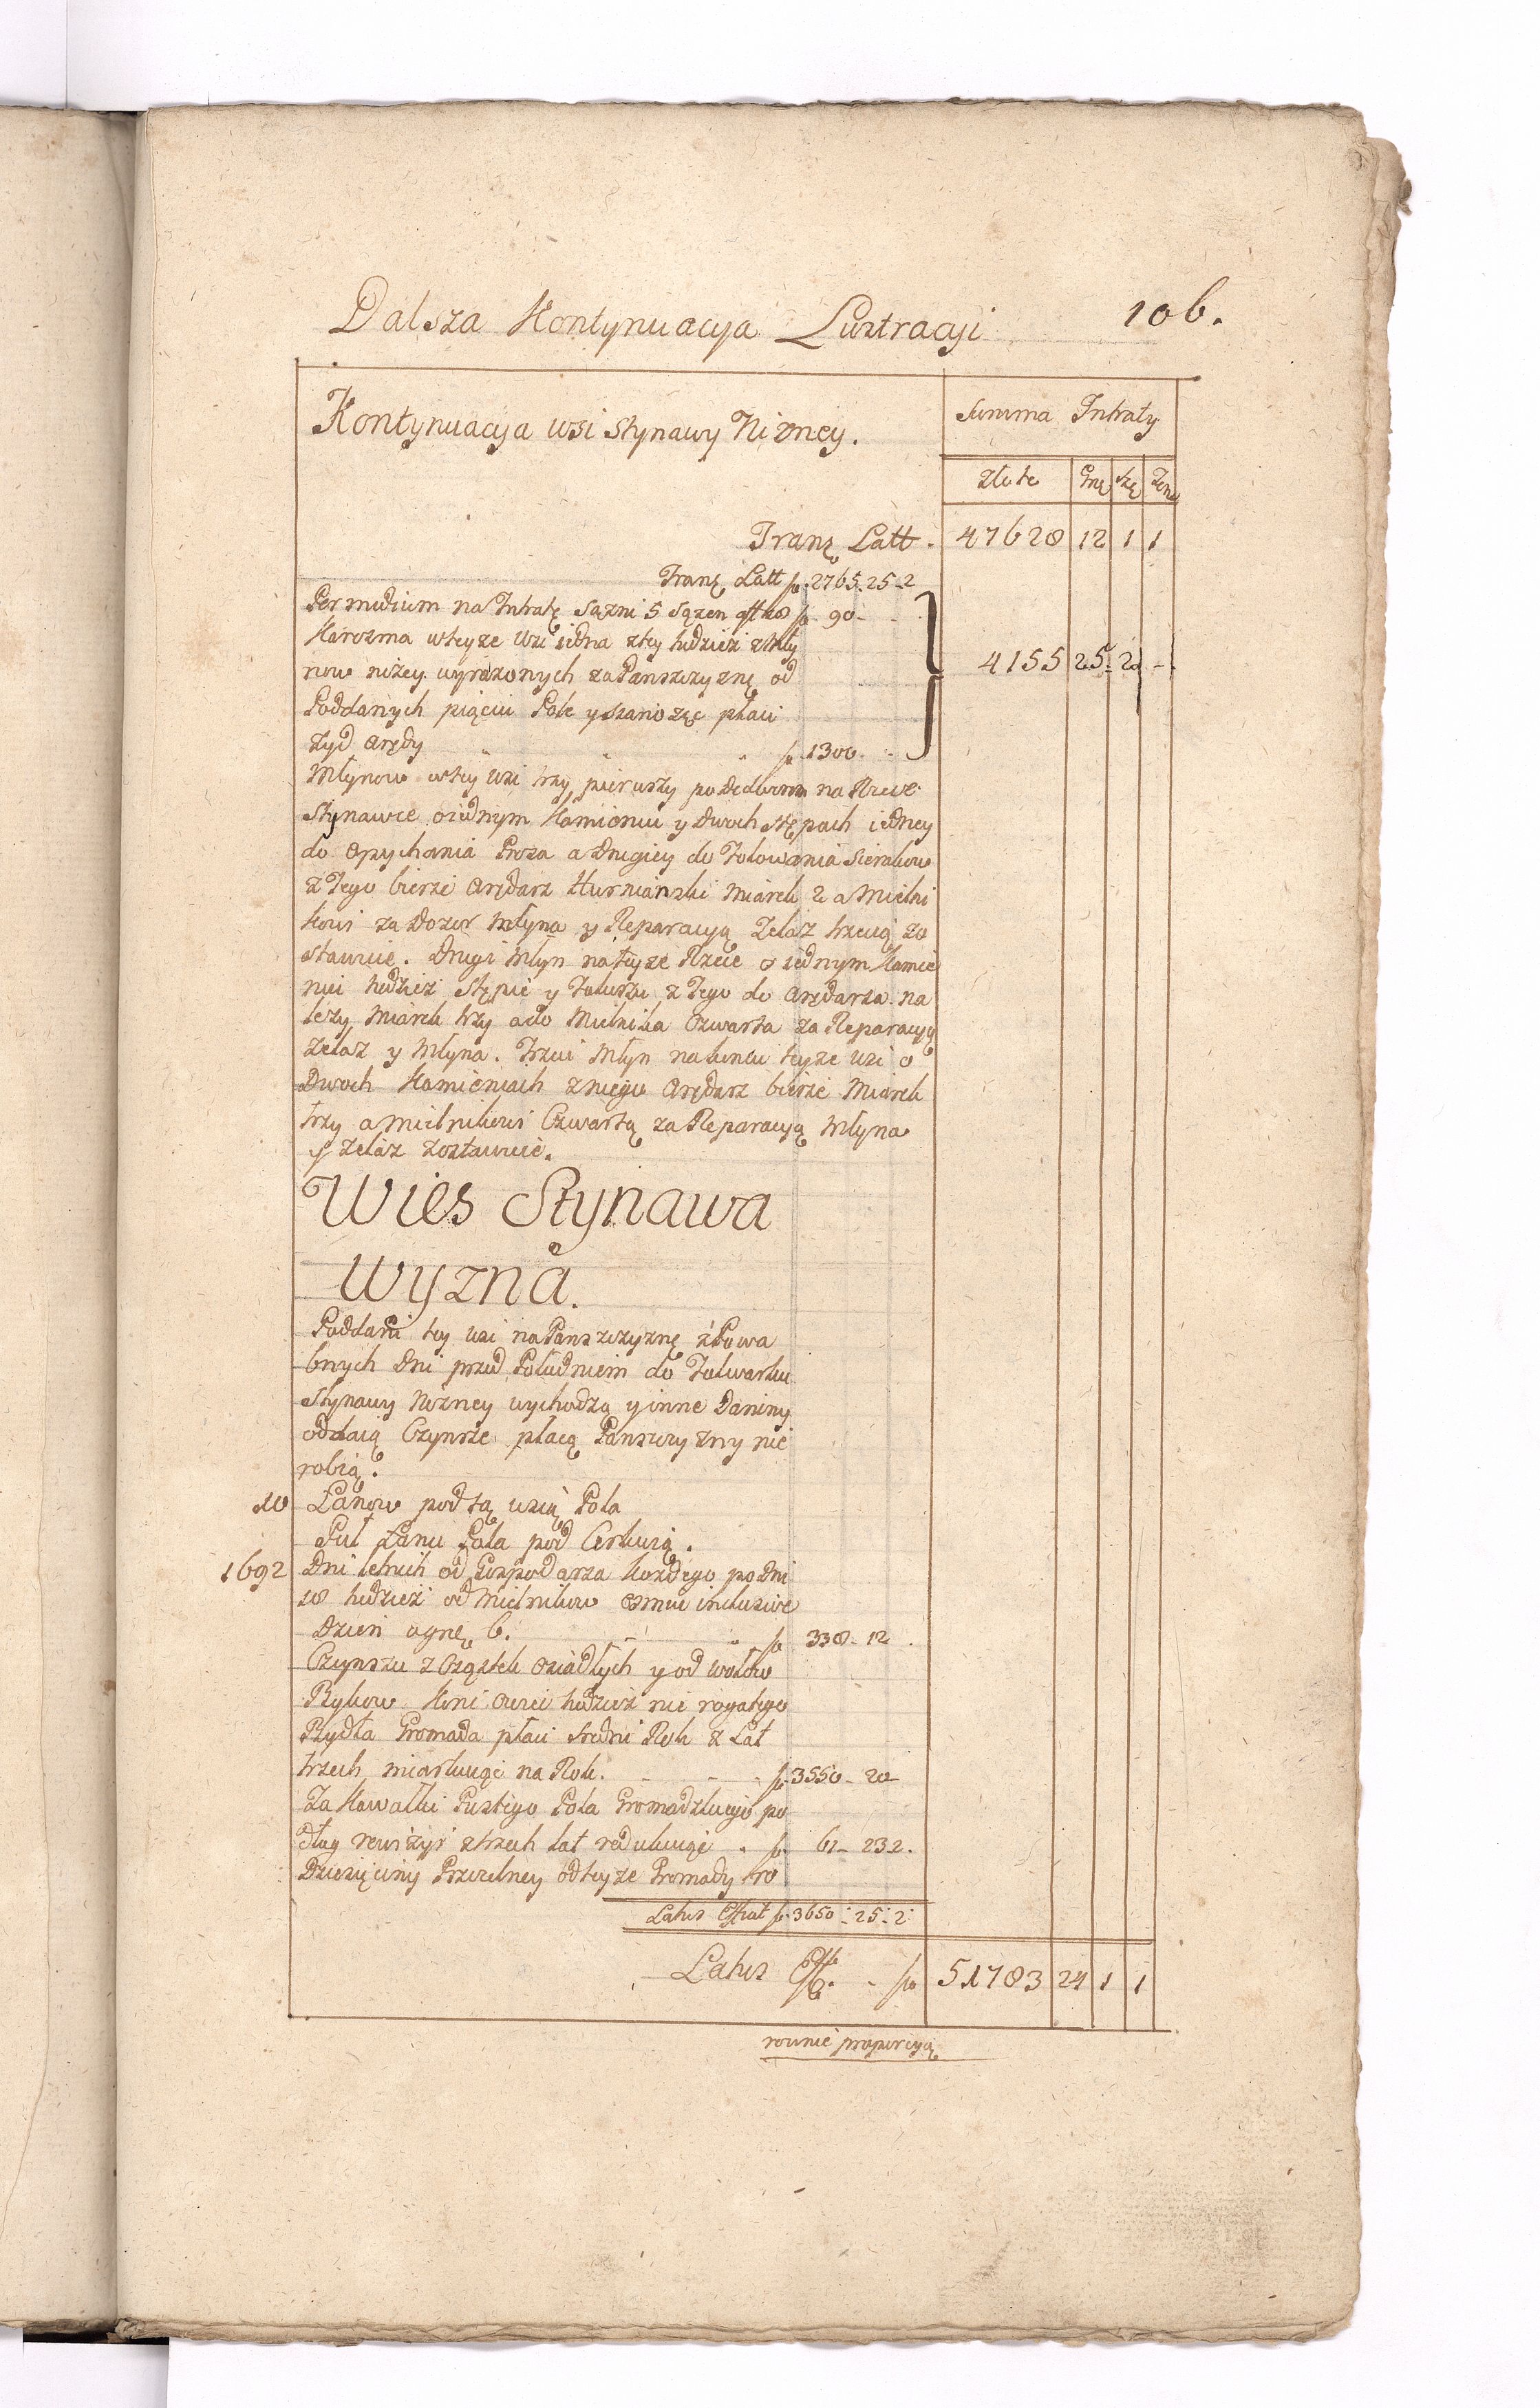 Dalsza Kontynuacyja Lustracyi 106.
Kontynuacyja wsi Stynawy Nizney.
Summa Intraty
Złote Grę Szę
Tranz Latt. 47628 12 1 1
Tranz. Latt fl. 2765.25-2
Per medium na Intratę Sązni 5 sązen fl 90-
Karczma wteyze wsi iedna ztey tudzież z Mły
now niżey wyrazonych za Panszczyznę od
Poddanych pięciu Pole y szanozęc płaci
Zyd Arędy fl. 1300.
4155 25. 2 -
Młynow wtey wsi trzy, pierwszy pod Dworem na Rzece
Stynawce o iednym Kamieniu y Dwoch Stępach iedney
do Opychania Proza a Drugiey do Folowania Sierakow
z Tego bierze Arędarz Miarek 2 a Mielni
kowi za Dozor Młyna y Reparacyą Zelaz trzecią zo
stawuie. Drugi Młyn na teyze Rzece o iednym Kamie
niu tudzież Stępie y Foluszu z Tego do Arędarza na
lezy Miarek trzy a do Mielnika Czwarta za Reparacyą
Zelaz y Młyna. Trzeci Młyn na koncu teyze wsi o
Dwoch Kamieniach z niego Arędarz bierze Miarek
trzy a Mielnikowi Czwartą za Reparacyą Młyna
y Zelaz zostawuie.
Wies Stynawa
Wyzna.
Poddani tey wsi na Panszczyznę
bnych Dni przed Południem do Folwarku
Stynawy Nizney wychodzą y inne Daniny
oddaią Czynsze płacą Panszczyzny nie
robią.
10 Łanow pod tą wsią Pola
Puł Łanu Pola pod Cerkwią.
1692 Dni letnich od Gospodarza kozdego po Dni
18 tudzież od Mielnikow osmiu inclusive
Dzień a grę 6. fl 338-12.
Czynszu z Cząstek osiadłych y od wołow
Bykow Koni Owiec tudzież nie rogatego
Bydła Gromada płaci średni Rok z Lat
trzech miarkuiąc na Rok. fl. 3550-20
Za Kawałki Pustego Pola Gromadzkiego po
dług rewizyi z trzech lat redukuiąc fl. 61-23 2.
Dziesięciny Pszczelney od teyze Gromady ro
Latus fl. 3650-25-2
Latus fl 51783 24 1 1
wnie proporcyą